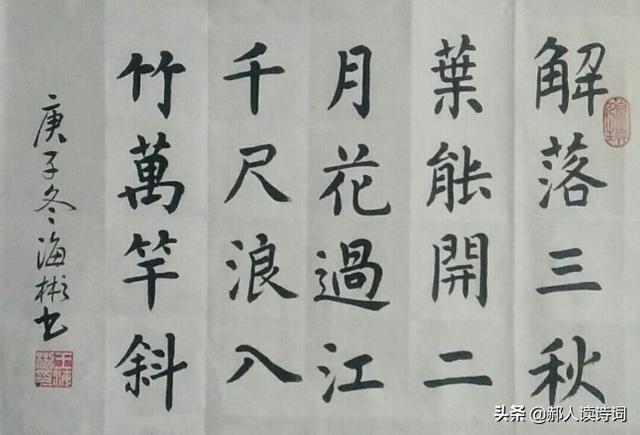 解落三秋
葉能開二
月花過江
千尺浪入
竹萬竿斜
庚子冬海彬书
头条 @郝人读诗词